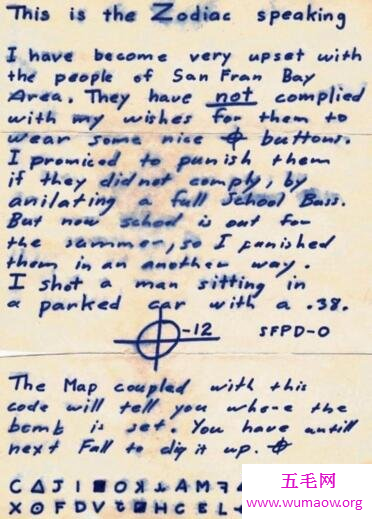 This is the Zodiac speaking
I have become very upset with
the people of San Fran Bay
Area. They have not complied
with my wishes for them to
wear some nice ⌖ buttons.
I promiced to punish them
if they did not comply, by
anilating a full School Buss.
But now school is out for
the sammer, so I punished
them in an another way.
I shot a man sitting in
a parked car with a .38.
⌖-12 SFPD-0
The Map coupled with this
code will tell you whoe the
bomb is set. You have antill
next Fall to dig it up. ⌖
C Δ J I ■ O A M
X ⊙ F D V H C E L
五毛网
www.wumaow.org